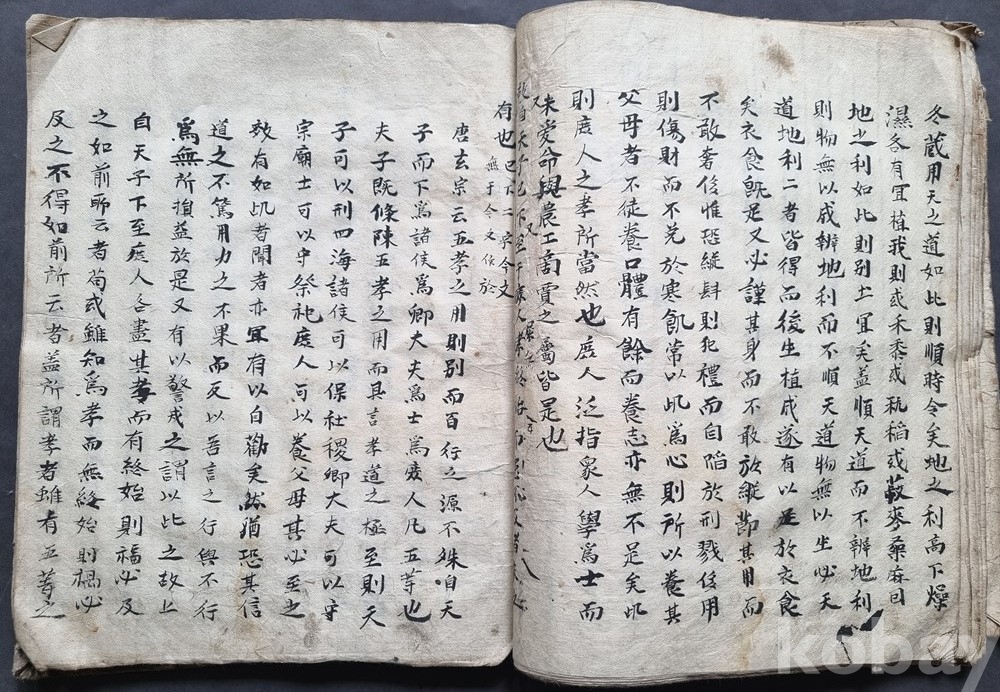 冬蔵用天之道如此則順時令矣地之利高下燥
濕各有宜植我則或禾黍或秔稻或菽麥桑麻因
地之利如此則别土宜矣盖順天道而不辨地利
則物無以成辨地利而不順天道物無以生必天
道地利二者皆得而後生植成遂有以足於衣食
矣衣食旣足又必謹其身而不敢放縱節其用而
不敢奢侈惟恐縱肆則犯禮而自陷於刑戮侈用
則傷財而不免於寒飢常以此爲心則所以養其
父母者不徒養口體有餘而養志亦無不足矣此
則庻人之孝所當然也庻人泛指衆人學爲士而
未受命與農工商賈之屬皆是也
故自天子已下至于庻人孝無終始而
有也 已下二字今文
無于今文作於
唐玄宗云五孝之用則别而百行之源不殊自天
子而下爲諸侯爲卿大夫爲士爲庻人凡五等也
夫子旣條陳五孝之用而具言孝道之極至則天
子可以刑四海諸侯可以保社稷卿大夫可以守
宗廟士可以守祭祀庻人可以養父母其必至之
效有如此者聞者亦宜有以自勸矣然猶恐其信
道之不篤用力之不果而反以吾言之行與不行
爲無所損益於是又有以警戒之謂以此之故上
自天子下至庻人各盡其孝而有終始則福必及
之如前所云者苟或雖知爲孝而無終始則禍必
及之不得如前所云者盖所謂孝者雖有五等之
kobay